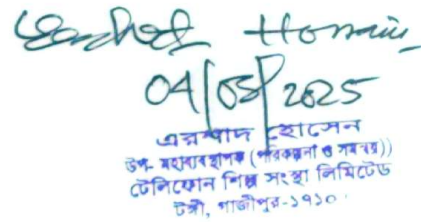 Hossain
04/05/2025
এরশাদ হোসেন
উপ- মহাব্যবস্থাপক (পরিকল্পনা ও সমন্বয়))
টেলিফোন শিল্প সংস্থা লিমিটেড
টঙ্গী, গাজীপুর-১৭১০